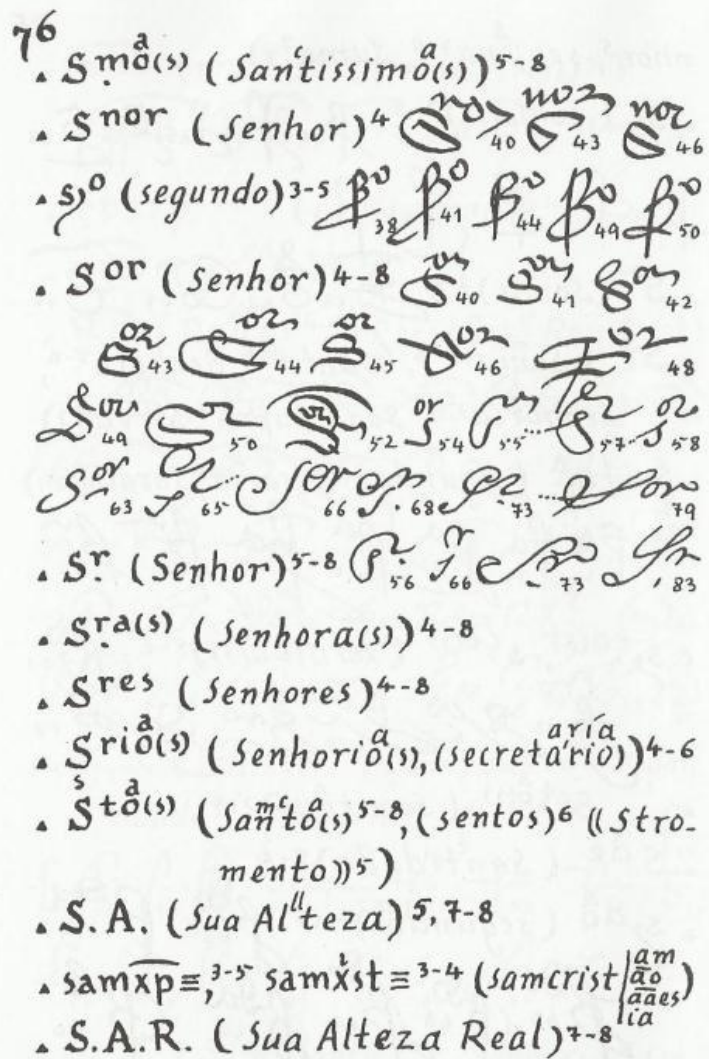 76
. Smo͏̊ᵃ(s) (Santissimoᵃ(s))⁵⁻⁸
. Snor (Senhor)⁴ 40 43 46
. s)º (segundo)³⁻⁵ 38 41 44 49 50
. Sor (Senhor)⁴⁻⁸ 40 41 42
43 44 45 46 48
49 50 52 54 55... 57. 58
63 65... 66 68 73... 79
. Sr. (Senhor)⁵⁻⁸ 56 66 73 83
. Sra(s) (Senhora(s))⁴⁻⁸
. Sres (Senhores)⁴⁻⁸
. Srioᵃ(s) (Senhorioᵃ(s), (secretário aría))⁴⁻⁶
. Stoᵃ(s) (Santoᵃ(s)⁵⁻⁸, (sentos)⁶ ((Stro-
mento))⁵)
. S.A. (Sua Al"teza)⁵,⁷⁻⁸
. samxp≡,³⁻⁵ samxist≡³⁻⁴ (samcrist|am ão ãaes ia)
. S.A.R. (Sua Alteza Real)⁷⁻⁸